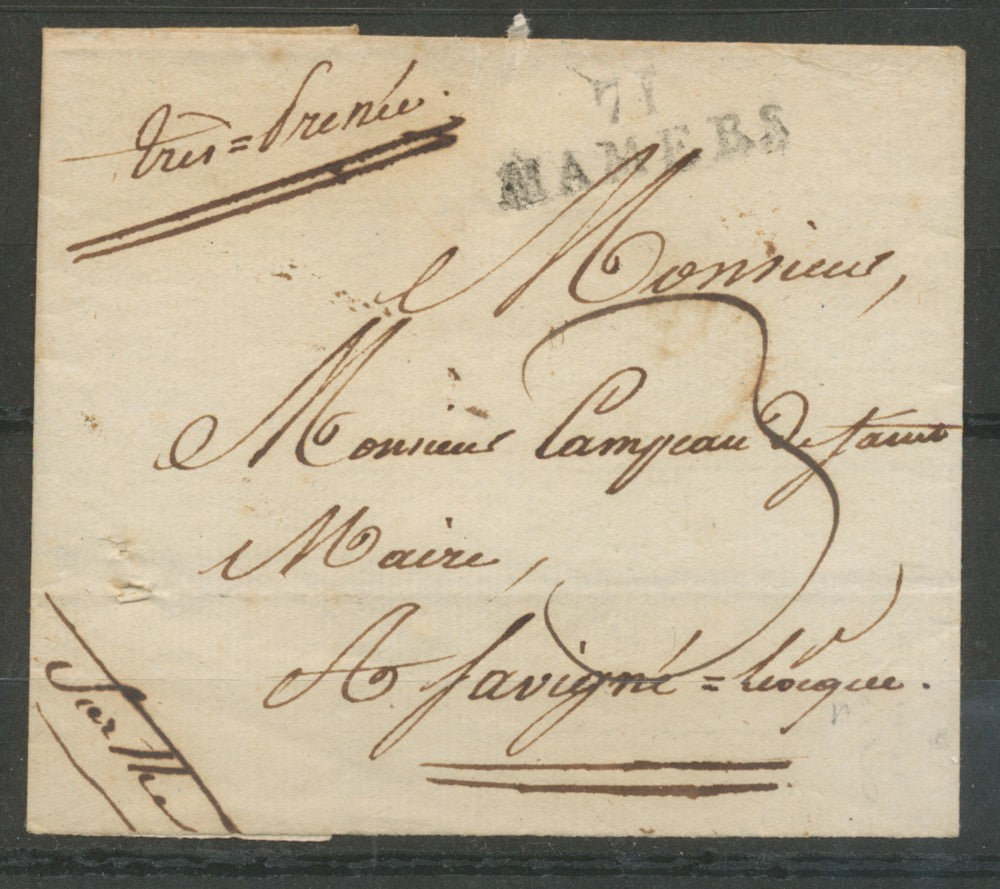 très = Prenée.
71
MAMERS
Monsieur,
3
Monsieur Campeau De Saint
Maire,
A Savigné = Lévêque.
Sarthe